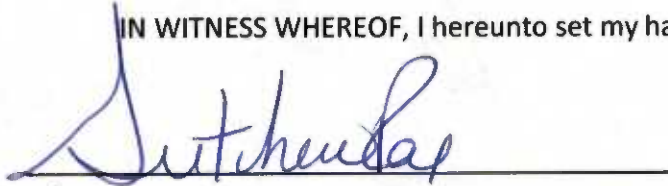 IN WITNESS WHEREOF, I hereunto set my ha